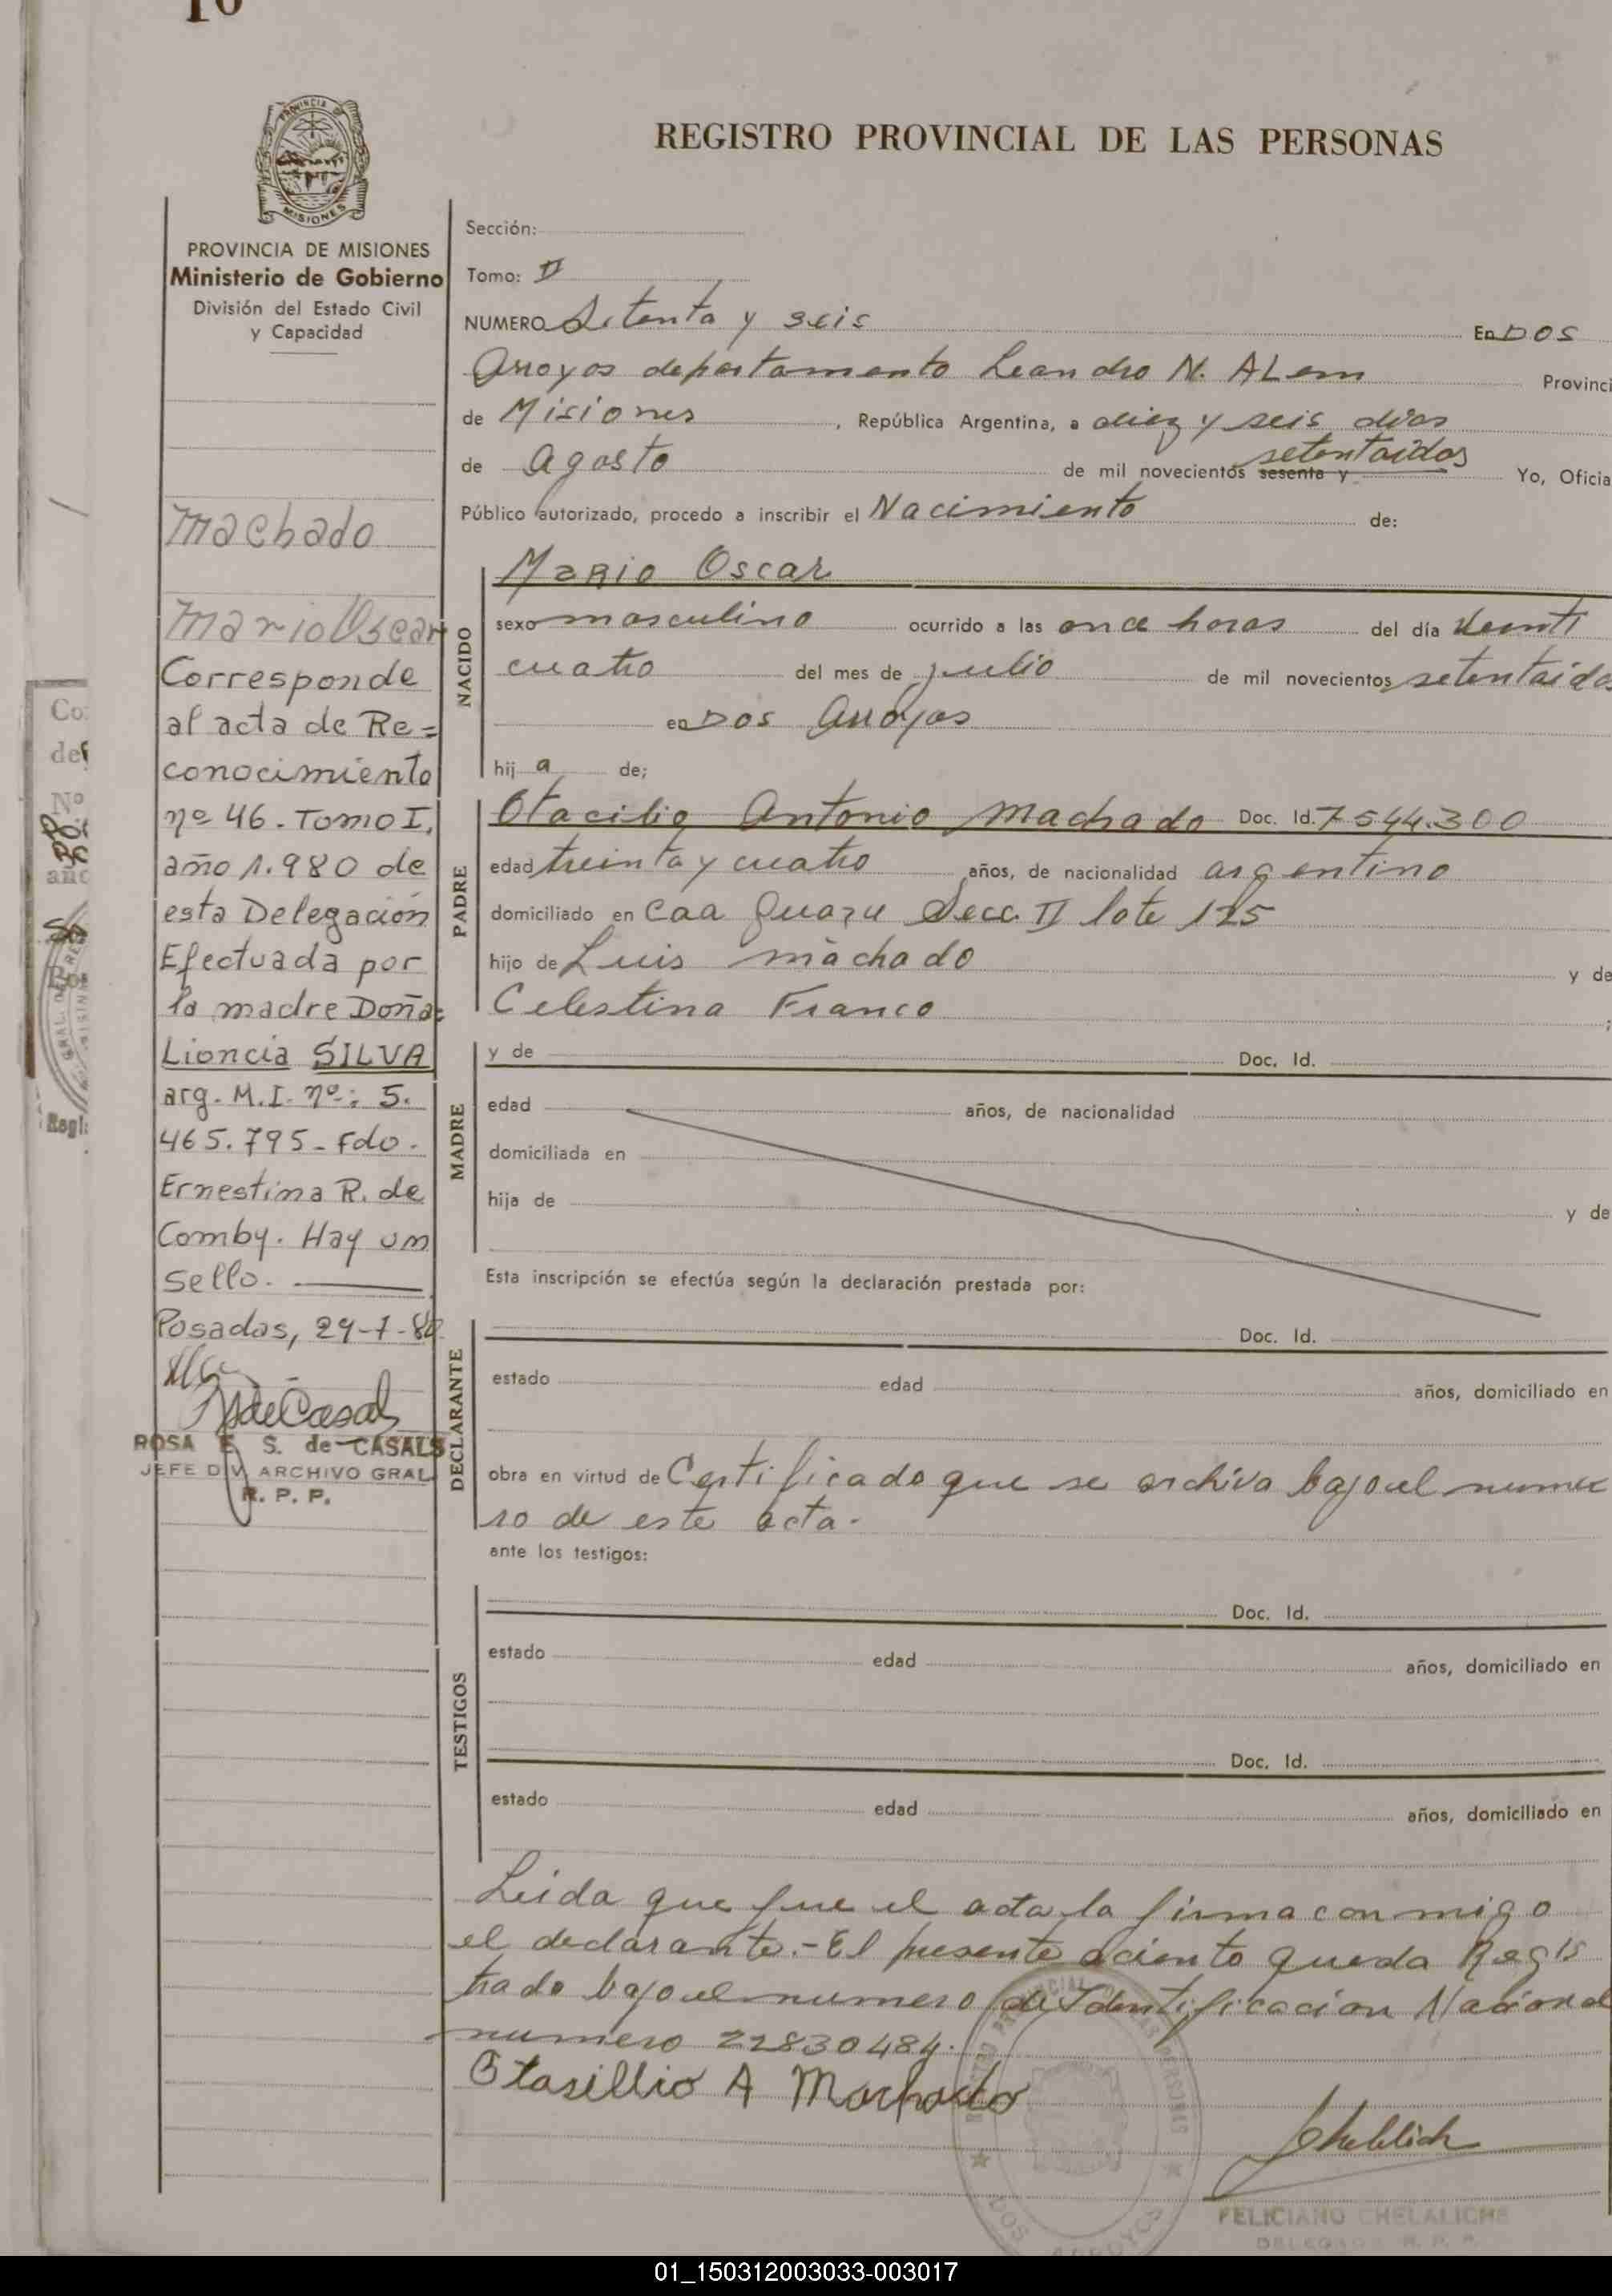 REGISTRO PROVINCIAL DE LAS PERSONAS
PROVINCIA DE
MISIONES
PROVINCIA DE MISIONES
Ministerio de Gobierno
División del Estado Civil
y Capacidad
Machado
Mario Oscar
Corresponde
al acta de Re=
conocimiento
nº 46. Tomo I,
año 1.980 de
esta Delegación
Efectuada por
la madre Doña=
Lioncia SILVA
arg. M.I. nº: 5.
465.795 - Fdo.
Ernestina R. de
Comby. Hay un
sello.
Posadas, 29-7-80
ROSA E. S. de CASALS
JEFE DIV. ARCHIVO GRAL.
R. P. P.
Sección:
Tomo: II
NUMERO Setenta y seis En DOS
Arroyos departamento Leandro N. ALem Provinci
de Misiones , República Argentina, a diez y seis dias
de Agosto de mil novecientos sesenta y setentaidos Yo, Oficia
Público autorizado, procedo a inscribir el Nacimiento de:
NACIDO
Mario Oscar
sexo masculino ocurrido a las once horas del día veinti
cuatro del mes de julio de mil novecientos setentaidos
en DOS Arroyos
hij a de;
PADRE
Otacilio Antonio Machado Doc. Id. 7544.300
edad treinta y cuatro años, de nacionalidad argentino
domiciliado en Caa Guazu Secc. II lote 125
hijo de Luis machado y de
Celestina Franco ;
MADRE
y de Doc. Id.
edad años, de nacionalidad
domiciliada en
hija de y de
Esta inscripción se efectúa según la declaración prestada por:
DECLARANTE
Doc. Id.
estado edad años, domiciliado en
obra en virtud de Certificado que se archiva bajo el nume
ro de este acta.
ante los testigos:
TESTIGOS
Doc. Id.
estado edad años, domiciliado en
Doc. Id.
estado edad años, domiciliado en
Leida que fue el acta la firma conmigo
el declarante.- El presente aciento queda Regis
trado bajo el numero de Identificacion Nacional
numero 22830484.
Otasillio A Machado
DOS ARROYOS
FELICIANO CHELALICHE
DELEGADO R. P. P.
01_150312003033-003017